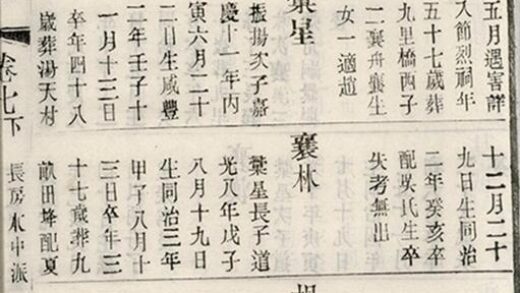 五月遇害詳
入節烈祠年
五十七歲葬
九里橋西子
二襄舟襄生
女一適趙
星
振揚次子嘉
慶十一年丙
寅六月二十
二日生咸豐
二年壬子十
一月十三日
卒年四十八
歲葬湯天村
十二月二十
九日生同治
二年癸亥卒
配吳氏生卒
失考無出
襄林
星長子道
光八年戊子
八月十九日
生同治三年
甲子八月十
三日卒年三
十七歲葬九
畝田埄配夏
卷七下
長房水中派